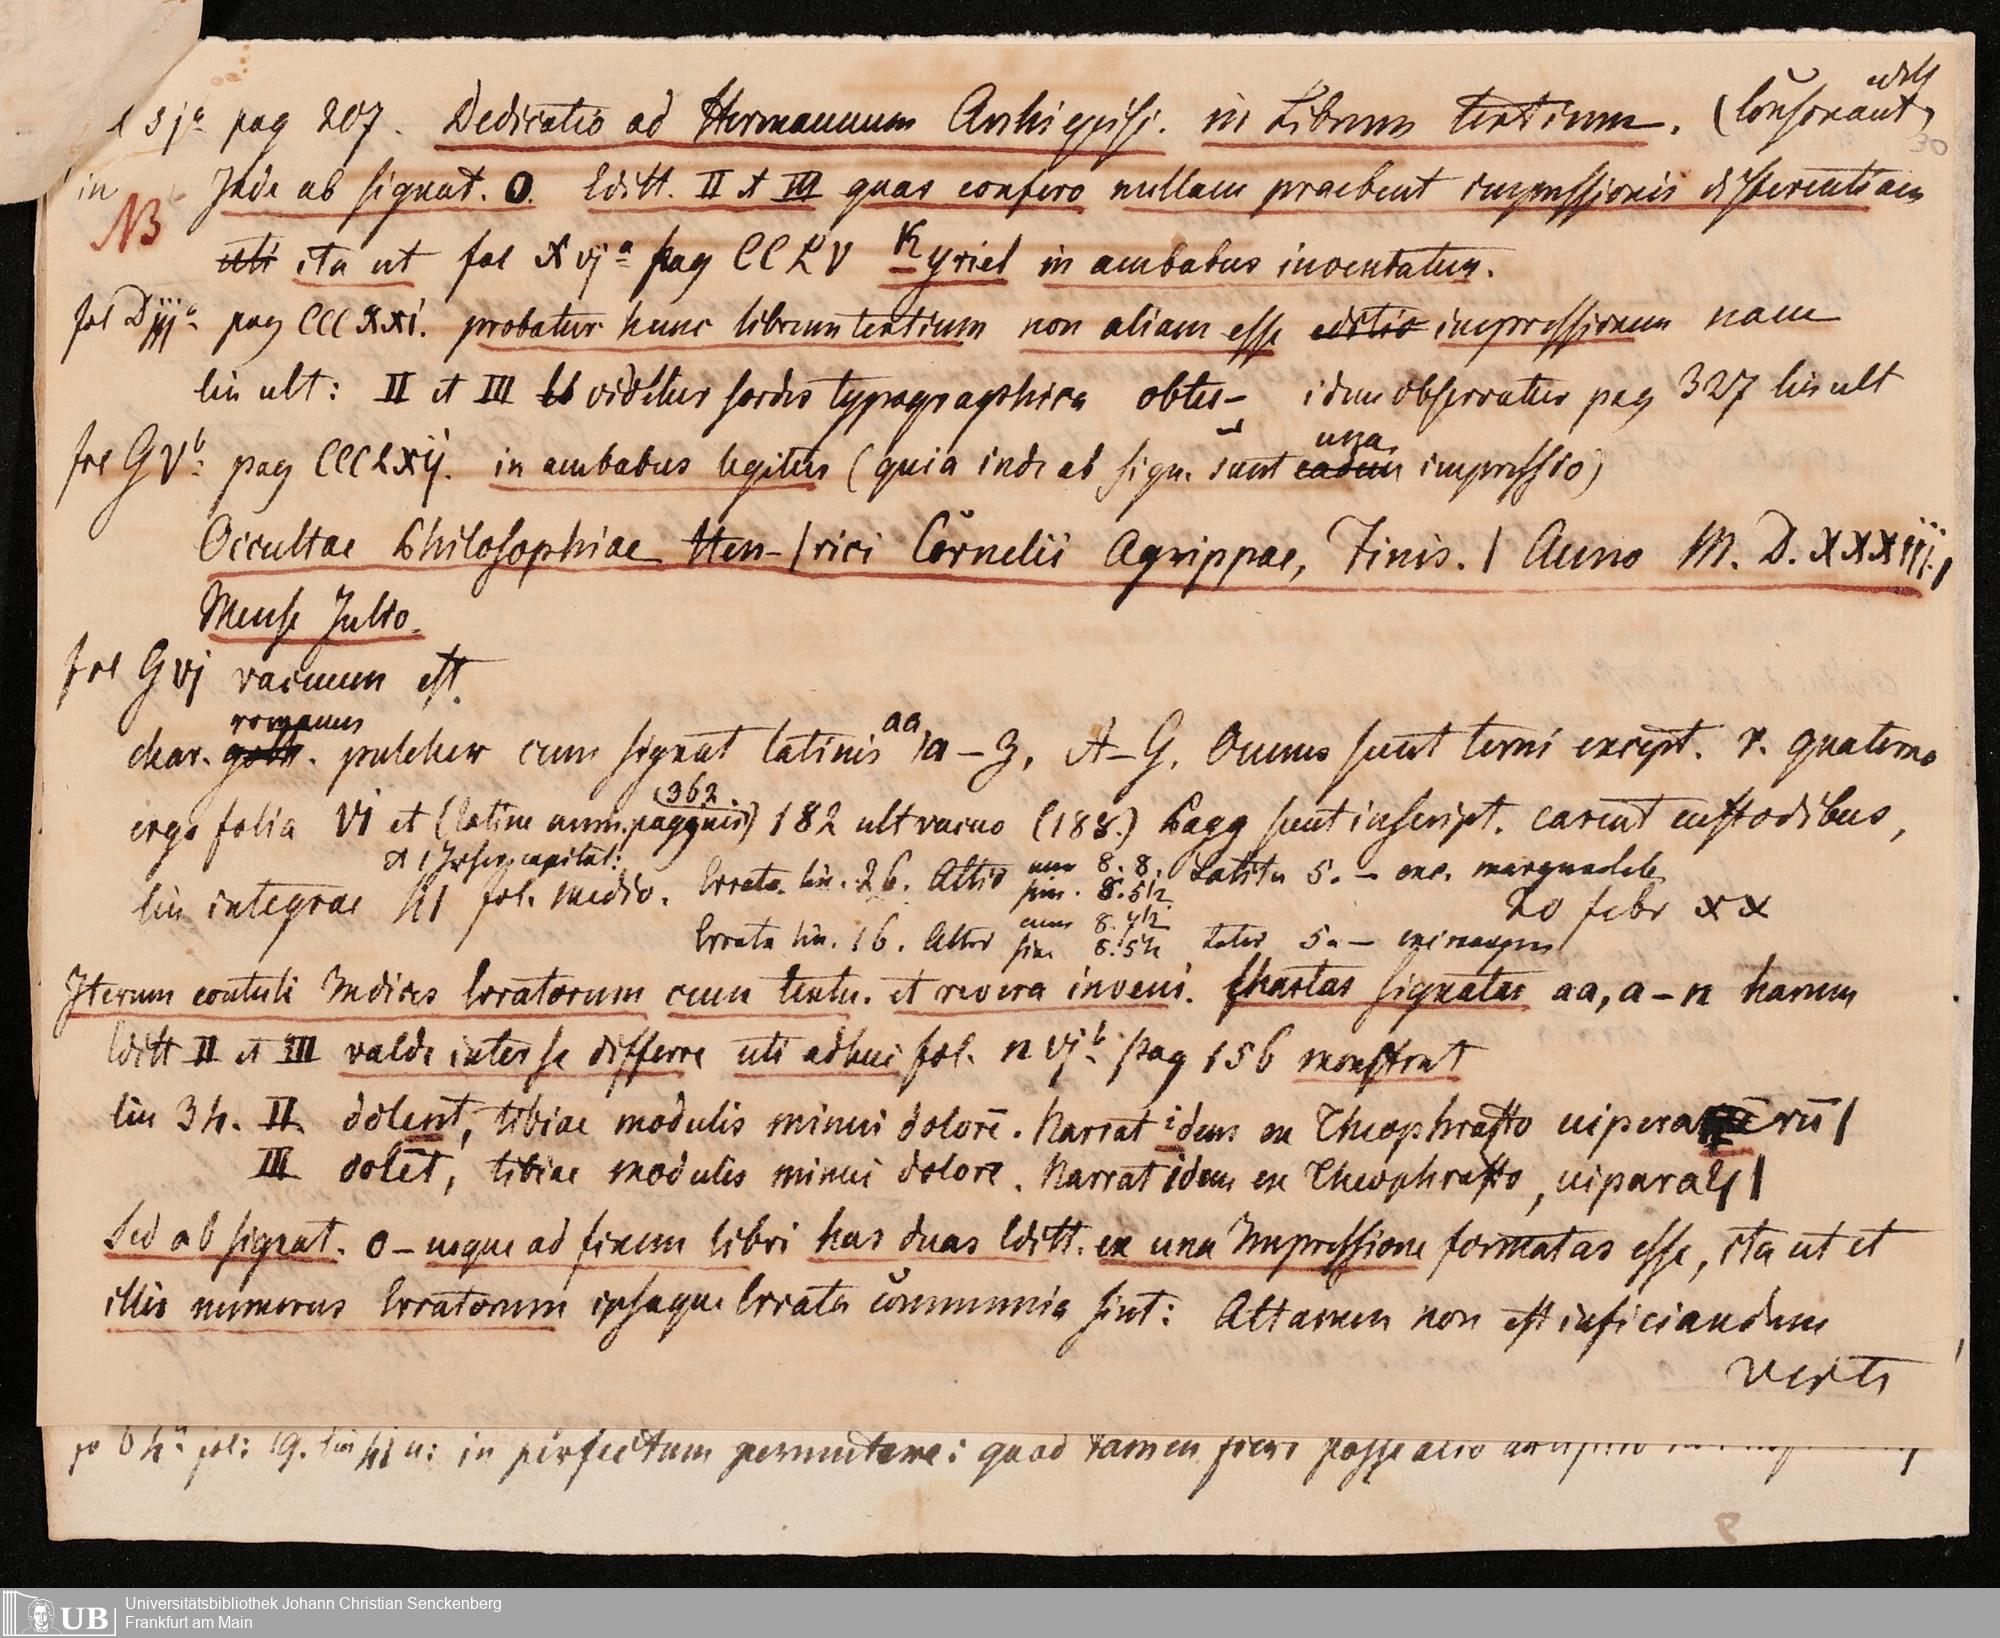 s jª pag 207. Dedicatio ad Hermannum Archiepisc. in Librum tertium. (Consonant
in Inde ab signat. o. Editt. II et III quas confero nullam praebent impressionis differentiam
NB
uti ita ut fol x vjª pag CCLV Kyriel in ambabus inventatur.
fol D iijª pag CCCXXI. probatur hunc librum tertium non aliam esse editio impressionem nam
lin ult: II et III videtur sordes typographica obtu- idem observatur pag 327 lin ult
fol G Vᵇ: pag CCCLXIJ. in ambabus legitur (quia inde ab sign. sunt eadem una impressio)
Occultae Philosophiae Hen-|rici Cornelii Agrippae, Finis. | Anno M. D. XXXIII. |
Mense Julio.
fol G vj vacuum est.
romanus
char. goth. pulcher cum signat latinis aa, a–z, A–G. Omnes sunt terni except. r. quaterno
362
ergo folia VI et (latine num. paggnis) 182 ult vacuo (188.) Pagg sunt inscript. carent custodibus,
lin integrae 41 fol. medio. Errata lin. 26. Altit cum 8. 8. Latitu 5. – exc. marginalib
sine 8. 5½
20 febr XX
Errata lin. 16. Altit cum 8. 4½ Latit 5. –
Iterum contuli Indices Erratorum cum textu. et revera inveni. Chartas signatas aa, a–n harum
Editt II et III valde inter se differre uti adhuc fol. n vjᵇ pag 156 monstrat
lin 34. II. dolent, tibiae modulis minui dolorē. Narrat idem ex Theophrasto uipera rū |
III dolēt, tibiae modulis minui dolore. Narrat idem ex Theophrasto, uiparaꝝ |
Sed ab signat. o – usque ad finem libri has duas Editt. ex una Impressione formatas esse, ita ut et
illis numerus Erratorum ipsaque Errata communia sint: Attamen non est inficiandum
verte
fol: 19. lin 41 u: in perfectum permutare: quod tamen fieri posse alio
Universitätsbibliothek Johann Christian Senckenberg
UB Frankfurt am Main